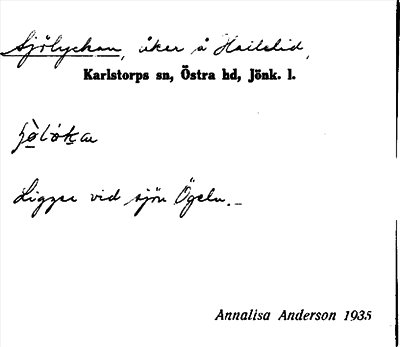 Sjölyckan, åker å Hailslid,
Karlstorps sn, Östra hd, Jönk. l.
Ligger vid sjön Ögeln.
Annalisa Anderson 1935